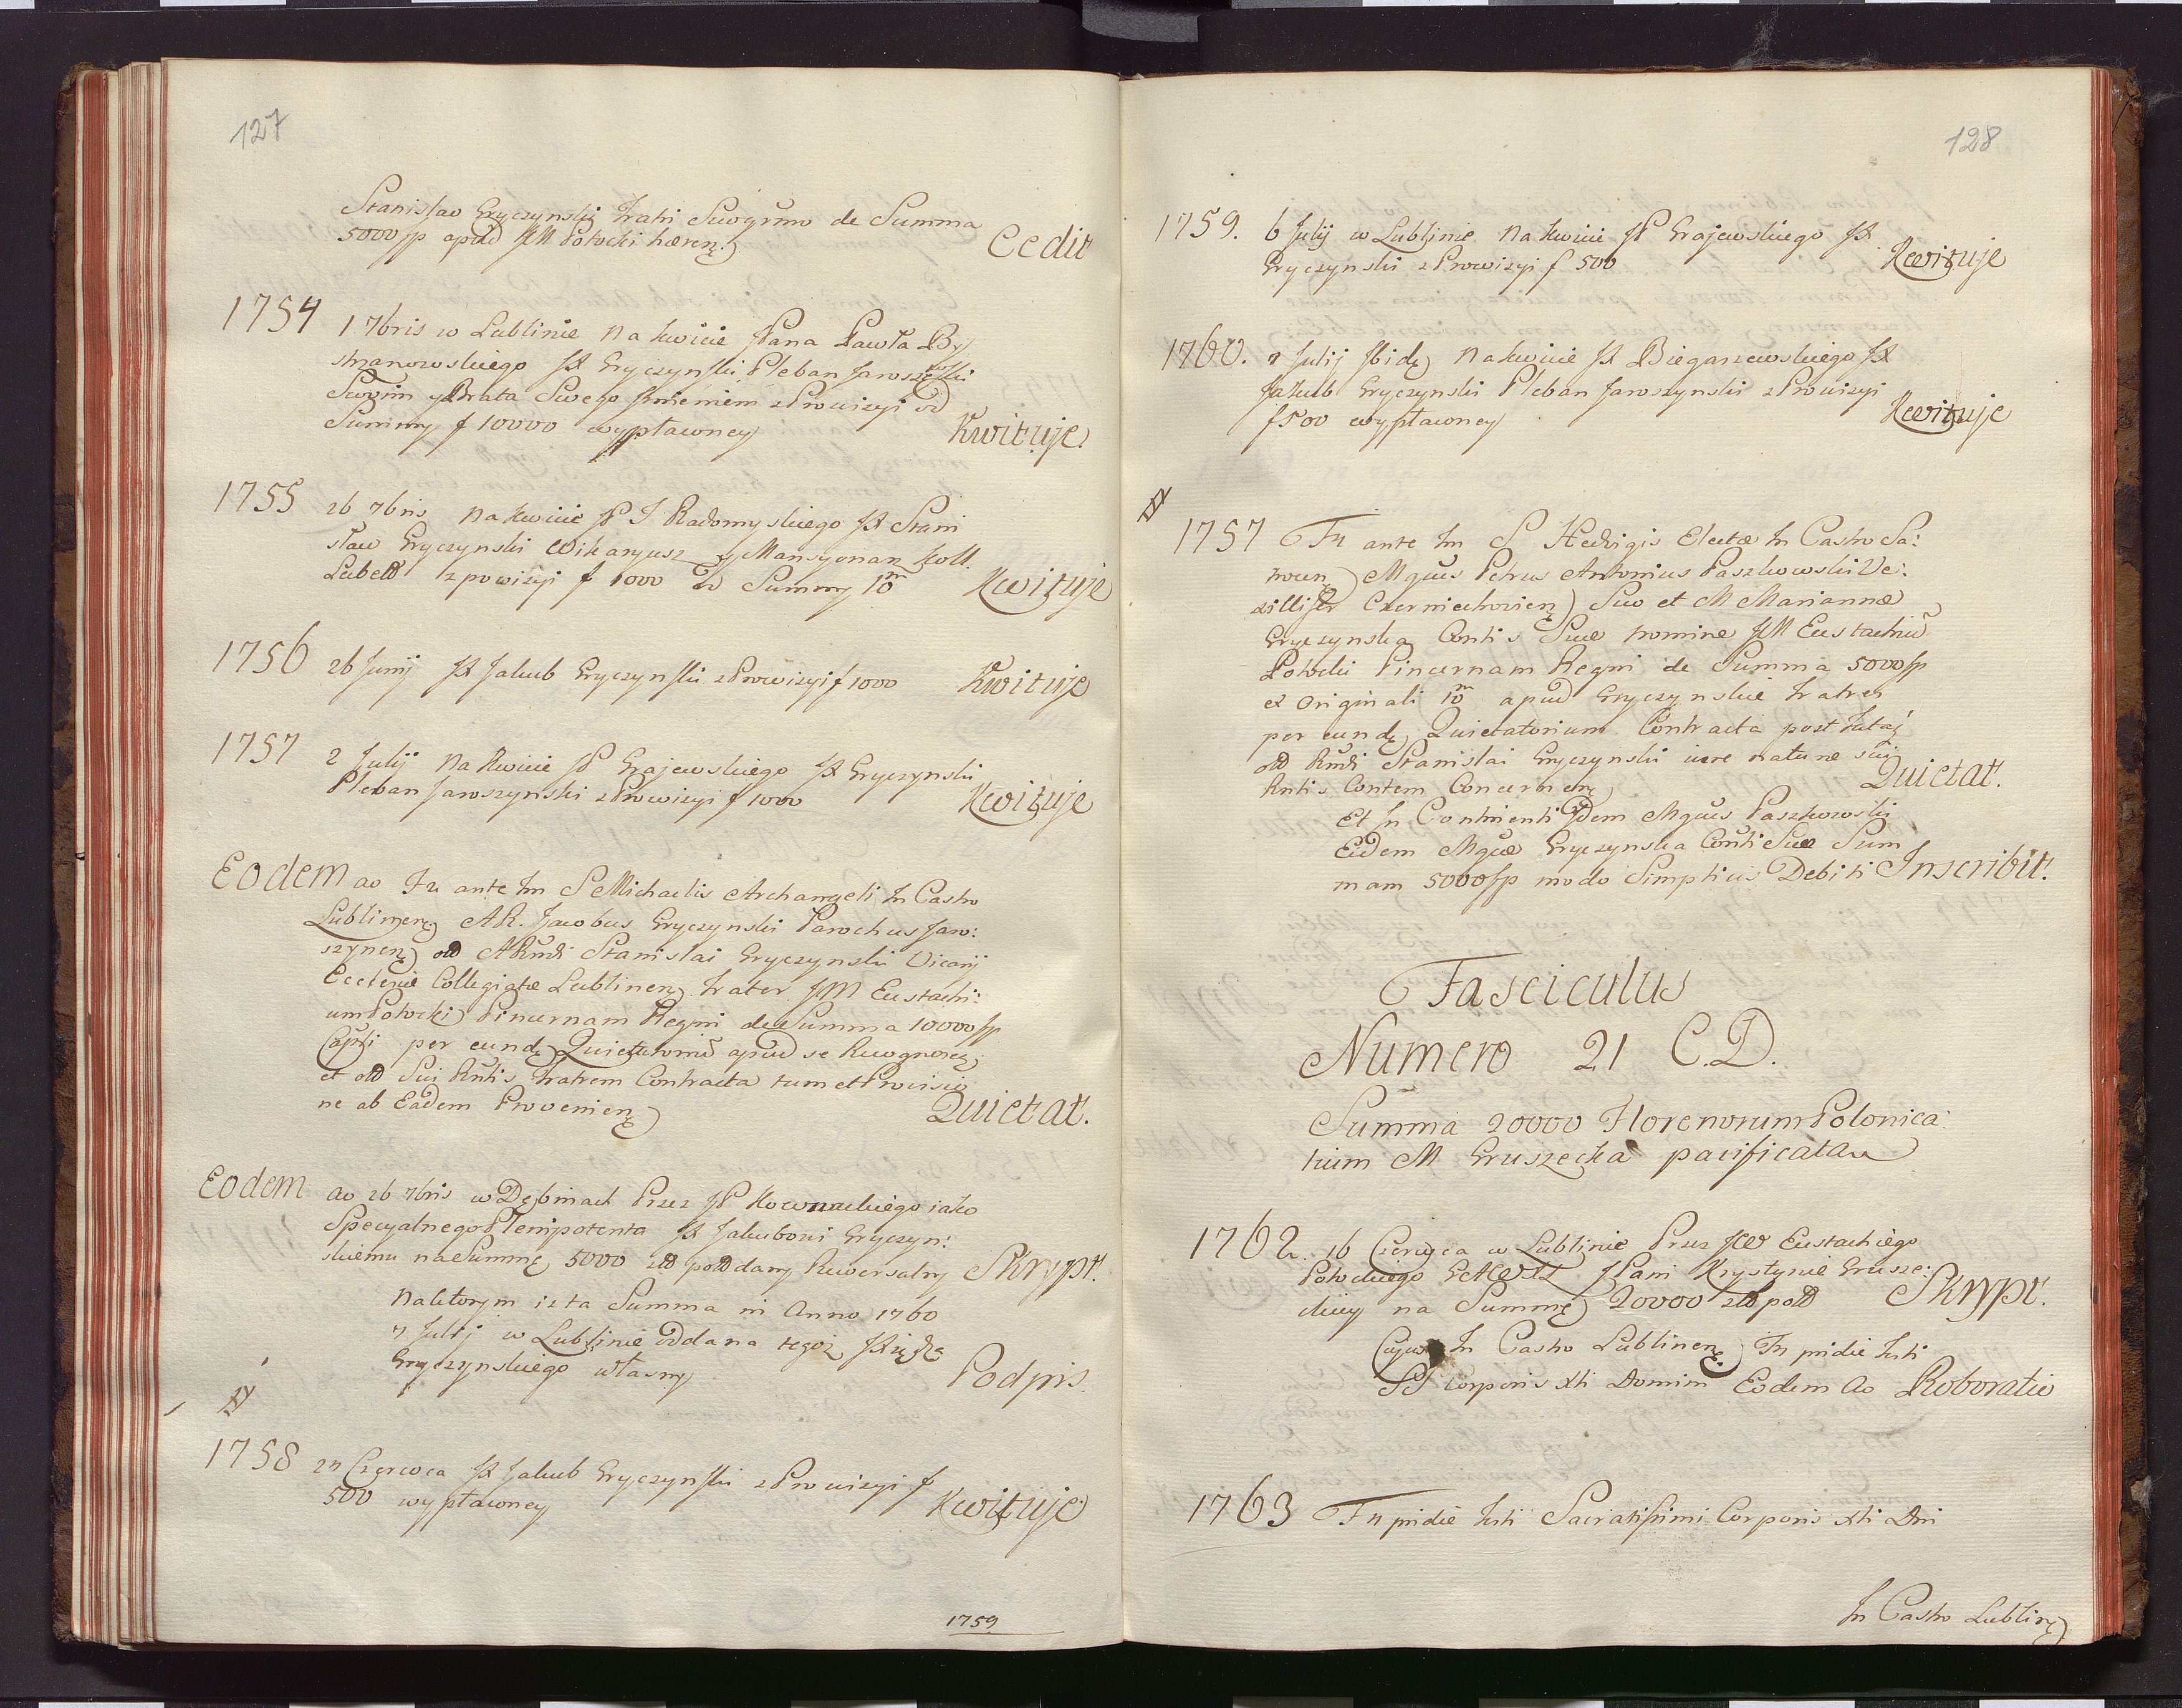 127
Stanislao Gryczynski Fratri Suo grmo de Summa
5000 fp apud JM Potocki hæren
Cedit
1754 1 7bris w Lublinie Na kwicie JPana Pawła By
strzanowskiego JX Gryczynski Pleban Jaroszynski
Swoim y Brata Swego Jmieniem z Prowizyi od
Summy f 10000 wypłaconey Kwituje
1755 26 7bris Na kwicie JP J Radomyskiego JX Stani
sław Gryczynski Wikaryusz y Mansyonarz Koll.
Lubel z powizyi f 1000 od Summy 10m Kwituje
1756 26 Junij JX Jakub Gryczynski z Prowizyi f 1000 Kwituje
1757 2 Julij Na Kwicie JP Grajewskiego JX Gryczynski
Pleban Jaroszynski z Prowizyi f 1000 Kwituje
Eodem ao Fr ante Fm S Michaelis Archangeli In Castro
Lublinen AR. Jacobus Gryczynski Parochus Jaro:
szynen olo A Rndi Stanislai Gryczynski Vicarij
Ecclesiæ Collegiatæ Lublinen frater JM Eustachi:
um Potocki Pincernam Regni de Summa 10000 fp
Capti per eund Quietatoriu apud se Recognoscen
et olo Sui Rntis fratrem Contracta tum et Provisio
ne ab Eadem Provenien Quietat.
Eodem ao 26 7bris w Dębinach Przez JP Kownackiego iako
Specyalnego Plenipotenta JX Jakubowi Gryczyn:
skiemu na Summę 5000 zł pol dany Rewersalny Skrypt.
Na którym iż ta Summa in Anno 1760
7 Julij w Lublinie oddana tegoż JXiędza
Gryczynskiego własny Podpis.
1758 27 Czerwca JX Jakub Gryczynski z Prowizyi f
500 wypłaconey Kwituje
1759
128
1759. 6 Julij w Lublinie Na kwicie JP Grajewskiego JX
Gryczynski z Prowizyi f 500 Kwituje
1760. 7 Julij Ibid Na kwicie JX Biegaszewskiego JX
Jakub Gryczynski Pleban Jaroszynski z Prowizyi
f 500 wypłaconey Kwituje
1757 Fr ante Fm S Hedvigis Electæ In Castro Sa:
nocen Mgcus Petrus Antonius Paszkowski Ve:
xillifer Czerniechovien Suo et M Mariannæ
Gryczynska Contis Suæ nomine JM Eustachiu
Potocki Pincernam Regni de Summa 5000 fp
ex originali 10m apud Gryczynskie fratres
per eund Quietatorium Contracta post fata
olo Rndi Stanislai Gryczynski iure naturæ sui
Rntis Contem Concernen Quietat.
Et In Continenti Idem Mgcus Paszkowski
Eidem Mgcæ Gryczynska Conti Suæ Sum
mam 5000 fp modo Simplicis Debiti Inscribit.
Fasciculus
Numero 21 C.D.
Summa 20000 Florenorum Polonica:
lium M Gruszecka pacificata
1762. 16 Czerwca w Lublinie Przez JW Eustachiego
Potockiego JPani Krystynie Grusze:
ckiey na Summę 20000 zł pol Skrypt.
Cujus In Castro Lublinen Fr pridie festi
SS Corporis Xti Domini Eodem Ao Roboratio
1763 Fr pridie festi Sacratissimi Corporis Xti Dni
In Castro Lublin